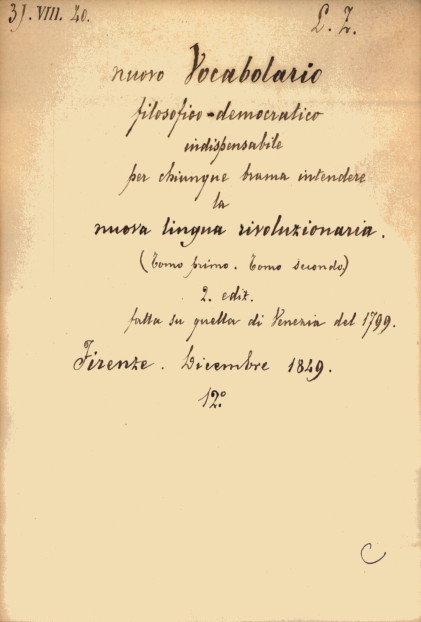 3J. VIII. 20.
L. Z.
nuovo Vocabolario
filosofico-democratico
indispensabile
per chiunque brama intendere
la
nuova lingua rivoluzionaria.
(Tomo primo. Tomo secondo)
2. edit.
fatta su quella di Venezia del 1799.
Firenze. Dicembre 1849.
12º
C